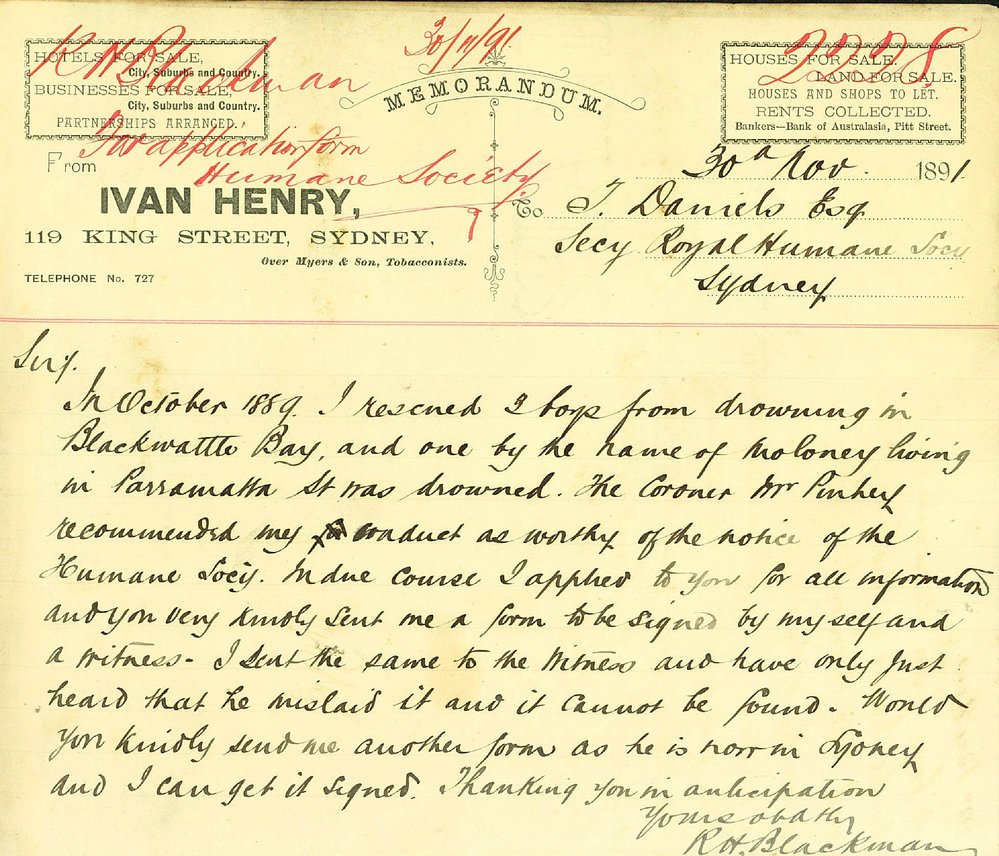 HOTELS FOR SALE,
City, Suburbs and Country.
BUSINESSES FOR SALE,
City, Suburbs and Country.
PARTNERSHIPS ARRANGED.
R H Blackman
30/11/91
MEMORANDUM.
HOUSES FOR SALE.
LAND FOR SALE.
HOUSES AND SHOPS TO LET.
RENTS COLLECTED.
Bankers—Bank of Australasia, Pitt Street.
for application form
Humane Society
From
IVAN HENRY,
119 KING STREET, SYDNEY,
Over Myers & Son, Tobacconists.
TELEPHONE No. 727
30th Nov. 1891
To J. Daniels Esq
Secy Royal Humane Socy
Sydney
Sir,
In October 1889. I rescued 2 boys from drowning in
Blackwattle Bay, and one by the name of Moloney living
in Parramatta St was drowned. The Coroner Mr Pinhey
recommended my conduct as worthy of the notice of the
Humane Socy. In due course I applied to you for all information
and you very kindly sent me a form to be signed by myself and
a witness. I sent the same to the witness and have only just
heard that he mislaid it and it cannot be found. Would
you kindly send me another form as he is now in Sydney
and I can get it signed. Thanking you in anticipation
Yours obdtly
R.H. Blackman